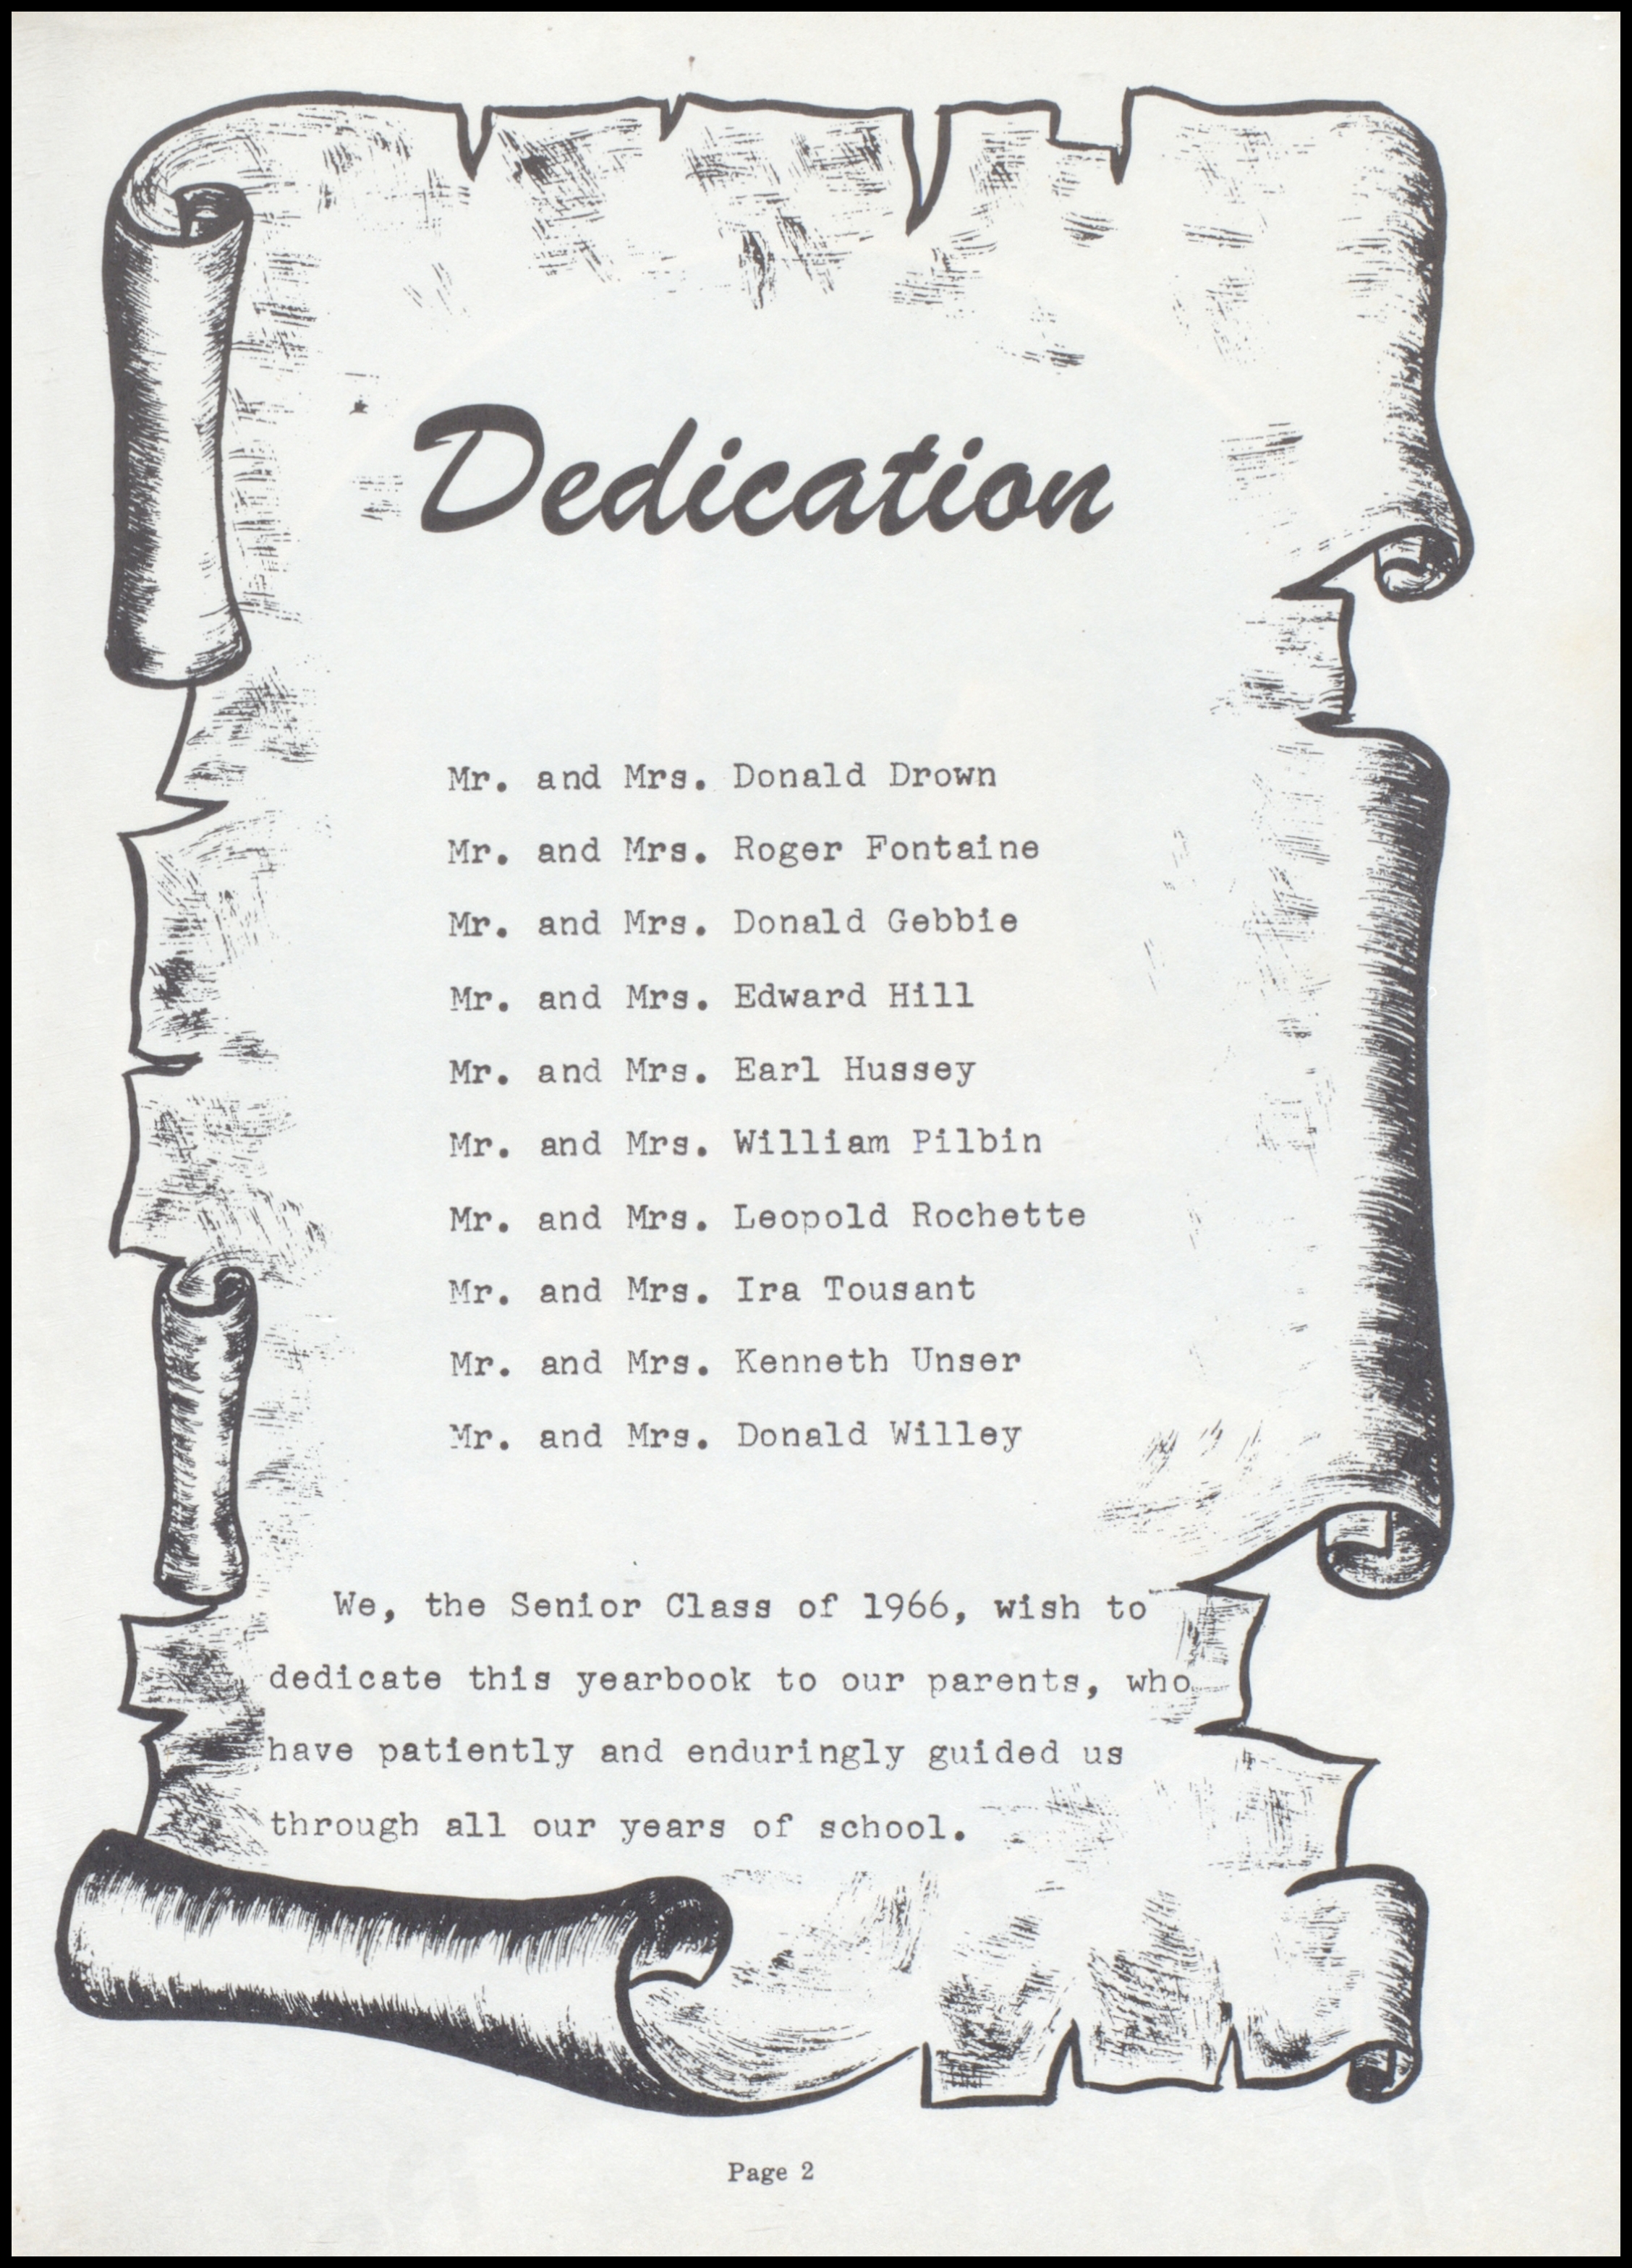 Dedication
Mr. and Mrs. Donald Drown
Mr. and Mrs. Roger Fontaine
Mr. and Mrs. Donald Gebbie
Mr. and Mrs. Edward Hill
Mr. and Mrs. Earl Hussey
Mr. and Mrs. William Pilbin
Mr. and Mrs. Leopold Rochette
Mr. and Mrs. Ira Tousant
Mr. and Mrs. Kenneth Unser
Mr. and Mrs. Donald Willey
We, the Senior Class of 1966, wish to
dedicate this yearbook to our parents, who
have patiently and enduringly guided us
through all our years of school.
Page 2